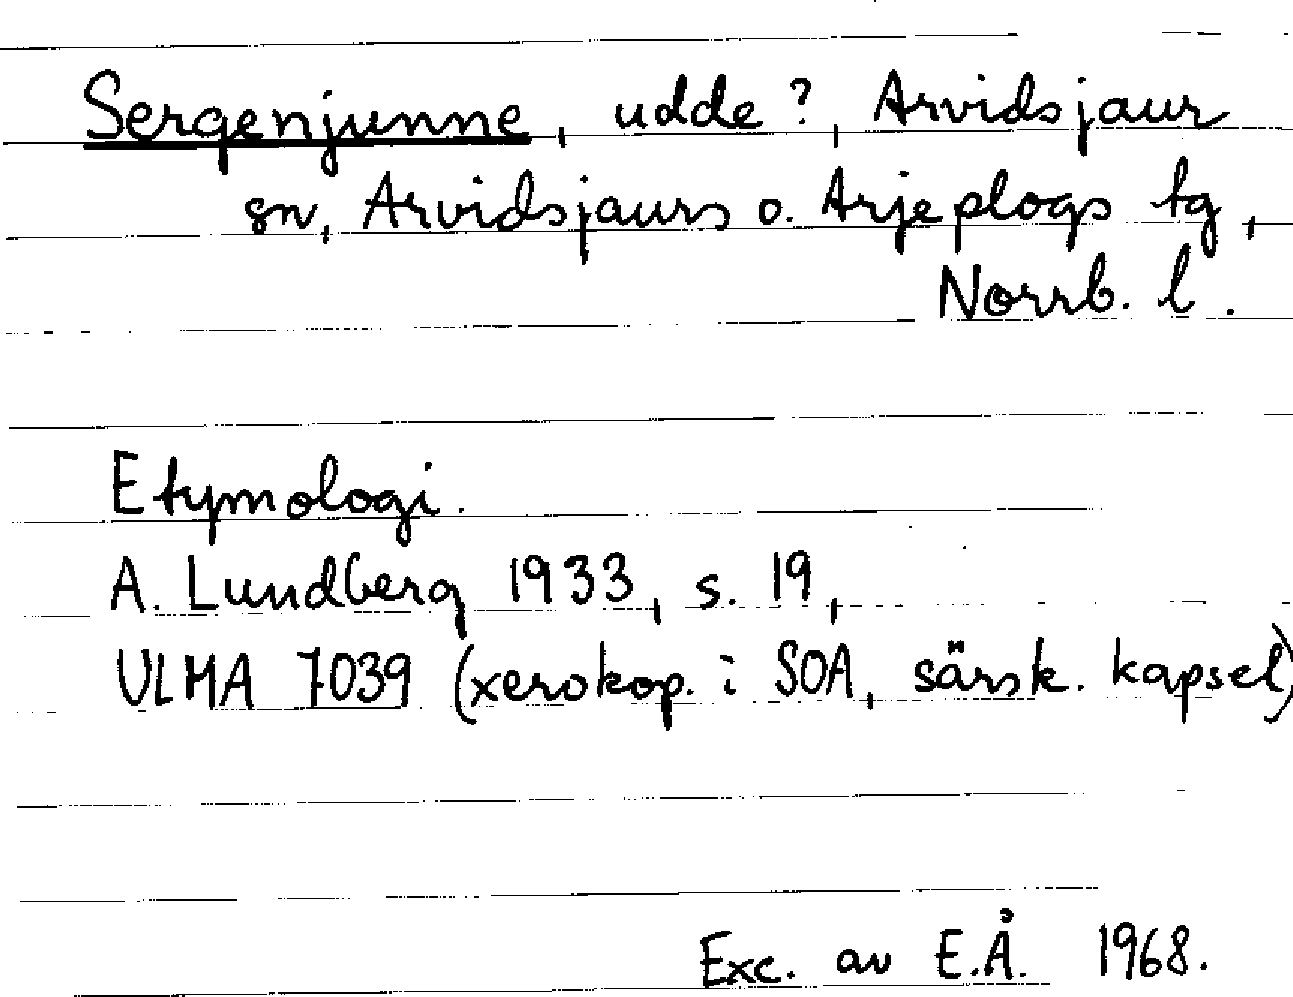 Sergenjunne, udde?, Arvidsjaur
sn, Arvidsjaurs o. Arjeplogs tg,
Norrb. l.
Etymologi.
A. Lundberg 1933, s. 19,
ULMA 7039 (xerokop. i SOA, särsk. kapsel)
Exc. av E.Å. 1968.